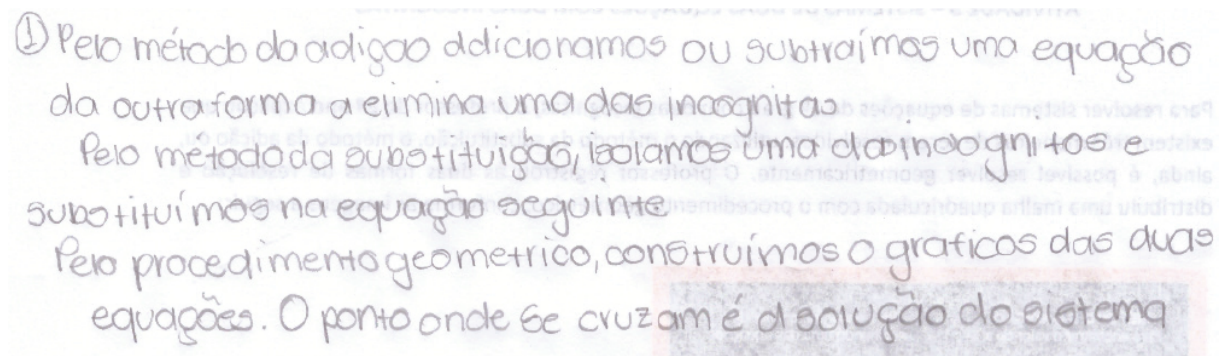 ① Pelo método da adição adicionamos ou subtraímos uma equação
da outra forma a elimina uma das incognitas
Pelo metodo da substituição, isolamos uma das incognitas e
substituímos na equação seguinte
Pelo procedimento geometrico, construimos o graficos das duas
equações. O ponto onde se cruzam é a solução do sistema